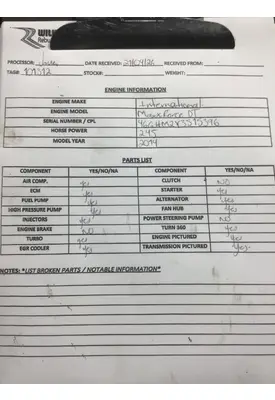 Rebu
PROCESSOR: DATE RECEIVED: RECEIVED FROM:
TAG#: STOCK#: WEIGHT:
ENGINE INFORMATION
ENGINE MAKE International
ENGINE MODEL MaxxForce DT
SERIAL NUMBER / CPL
HORSE POWER 245
MODEL YEAR 2014
PARTS LIST
COMPONENT YES/NO/NA COMPONENT YES/NO/NA
AIR COMP. yes CLUTCH NO
ECM yes STARTER yes
FUEL PUMP yes ALTERNATOR yes
HIGH PRESSURE PUMP yes FAN HUB yes
INJECTORS yes POWER STEERING PUMP NO
ENGINE BRAKE NO TURN 360 yes
TURBO yes ENGINE PICTURED yes
EGR COOLER yes TRANSMISSION PICTURED yes
NOTES: *LIST BROKEN PARTS / NOTABLE INFORMATION*